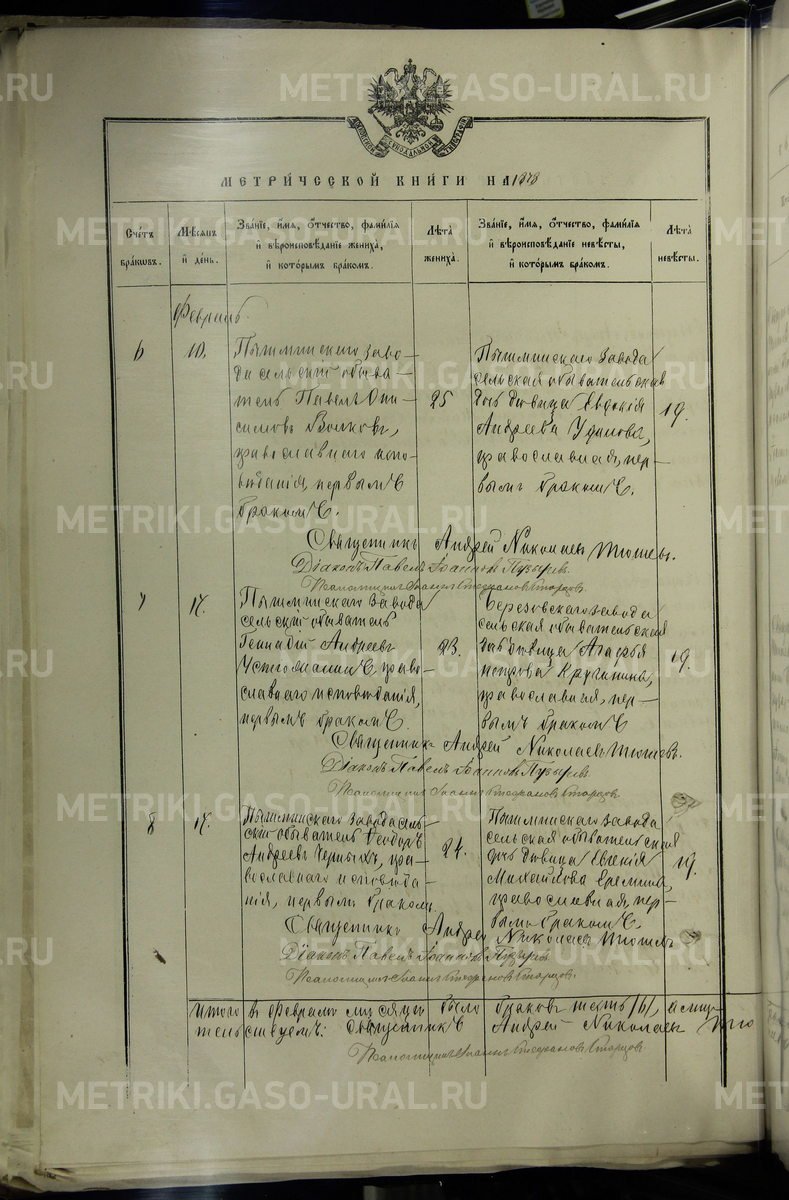 МЕТРИ́ЧЕСКОЙ КНИ́ГИ НА 1878
Сче́тъ бра́ковъ.
Мѣ́сяцъ и́ день.
Зва́нїе, и́мя, о́тчество, фами́лїя и́ вѣроисповѣ́данїе жениха̀, и́ кото́рымъ бра́комъ.
Лѣ́та жениха̀.
Зва́нїе, и́мя, о́тчество, фами́лїя и́ вѣроисповѣ́данїе невѣ́сты, и́ кото́рымъ бра́комъ.
Лѣ́та невѣ́сты.
Февраль.
6
10.
Пышминскаго заво-
да сельскій обыва-
тель Павелъ Они-
симовъ Волковъ,
православнаго испо-
вѣданія, первымъ
бракомъ.
25
Пышминскаго завода
сельская обывательская
дочь дѣвица Евдокія
Андреева
православная, пер-
вымъ бракомъ.
19.
Священникъ Андрей Николаевъ
Діаконъ Павелъ Іоанновъ Пузыревъ.
Псаломщикъ Стефановъ
7
14.
Пышминскаго завода
сельскій обыватель
Геннадій Андреевъ
православнаго исповѣданія,
первымъ бракомъ.
23.
Березовскаго завода
сельская обывательская
дочь дѣвица Агафья
Петрова
православная, пер-
вымъ бракомъ
19.
Священникъ Андрей Николаевъ
Діаконъ Павелъ Іоанновъ Пузыревъ.
Псаломщикъ Стефановъ
8
14.
Пышминскаго завода сель-
скій обыватель Ѳеодоръ
Андреевъ Черныхъ, пра-
вославнаго исповѣда-
нія, первымъ бракомъ.
24.
Пышминскаго завода
сельская обывательская
дочь дѣвица Евгенія
Михайлова Еремина,
православная, пер-
вымъ бракомъ.
19.
Священникъ Андрей Николаевъ
Діаконъ Павелъ Іоанновъ Пузыревъ.
Псаломщикъ Стефановъ
Итого въ февралѣ мѣсяцѣ было браковъ шесть /6/,
Священникъ Андрей Николаевъ
Псаломщикъ Стефановъ
METRIKI.GASO-URAL.RU